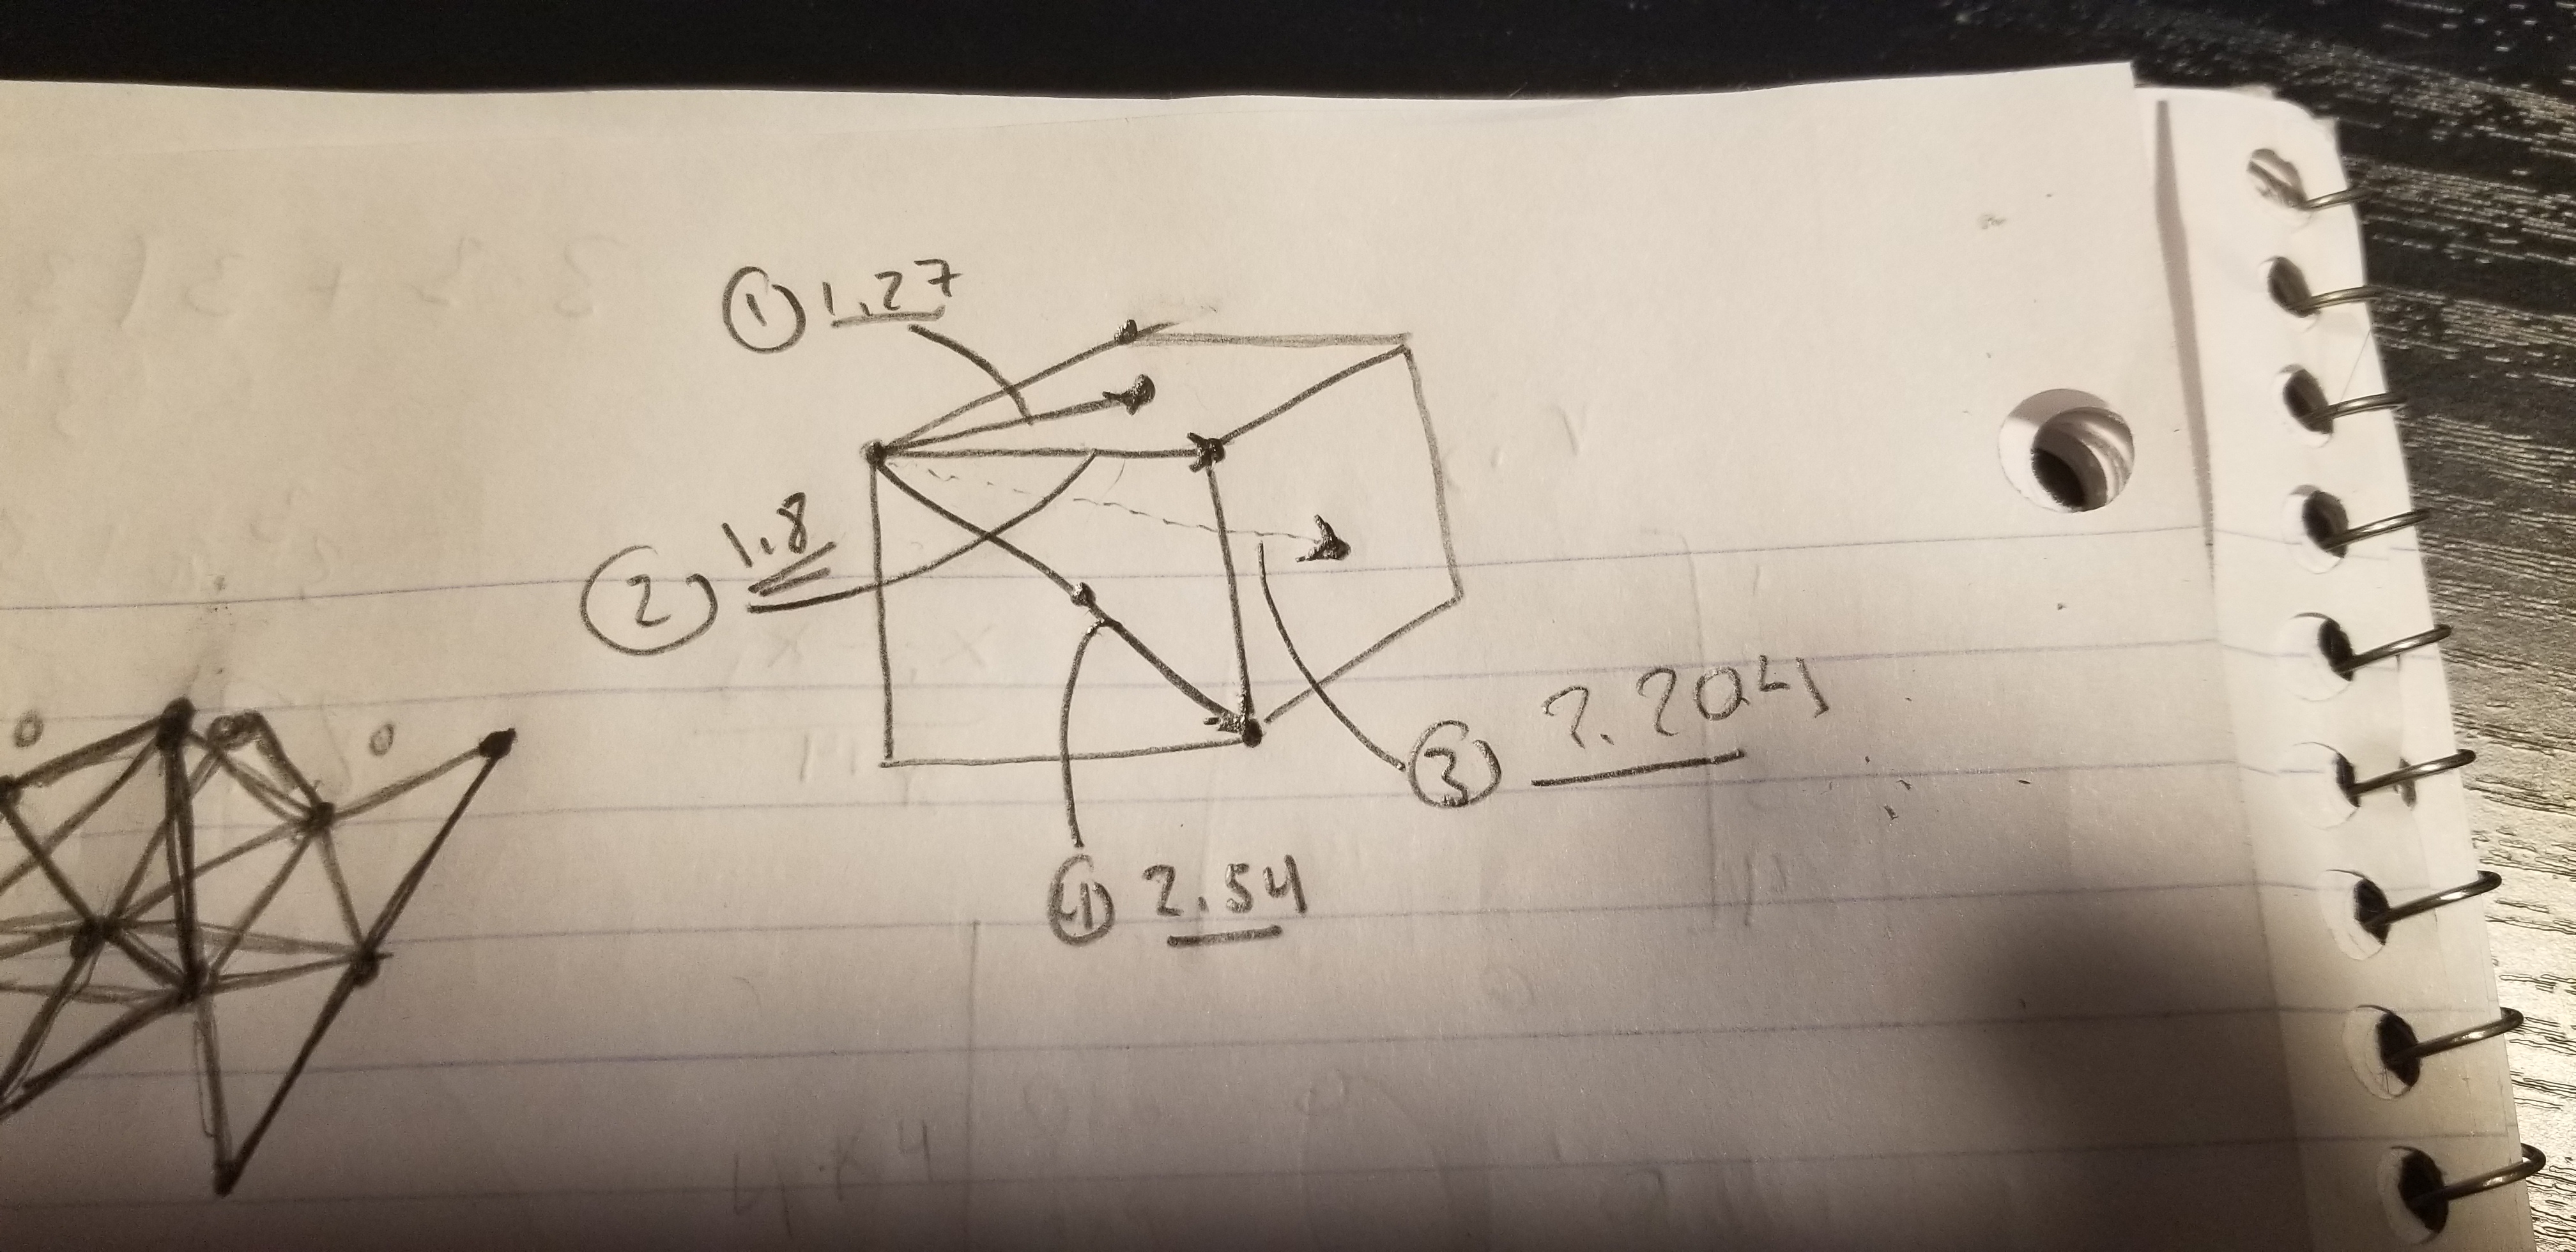 ① 1.27
② 1.8
③ 2.204
④ 2.54